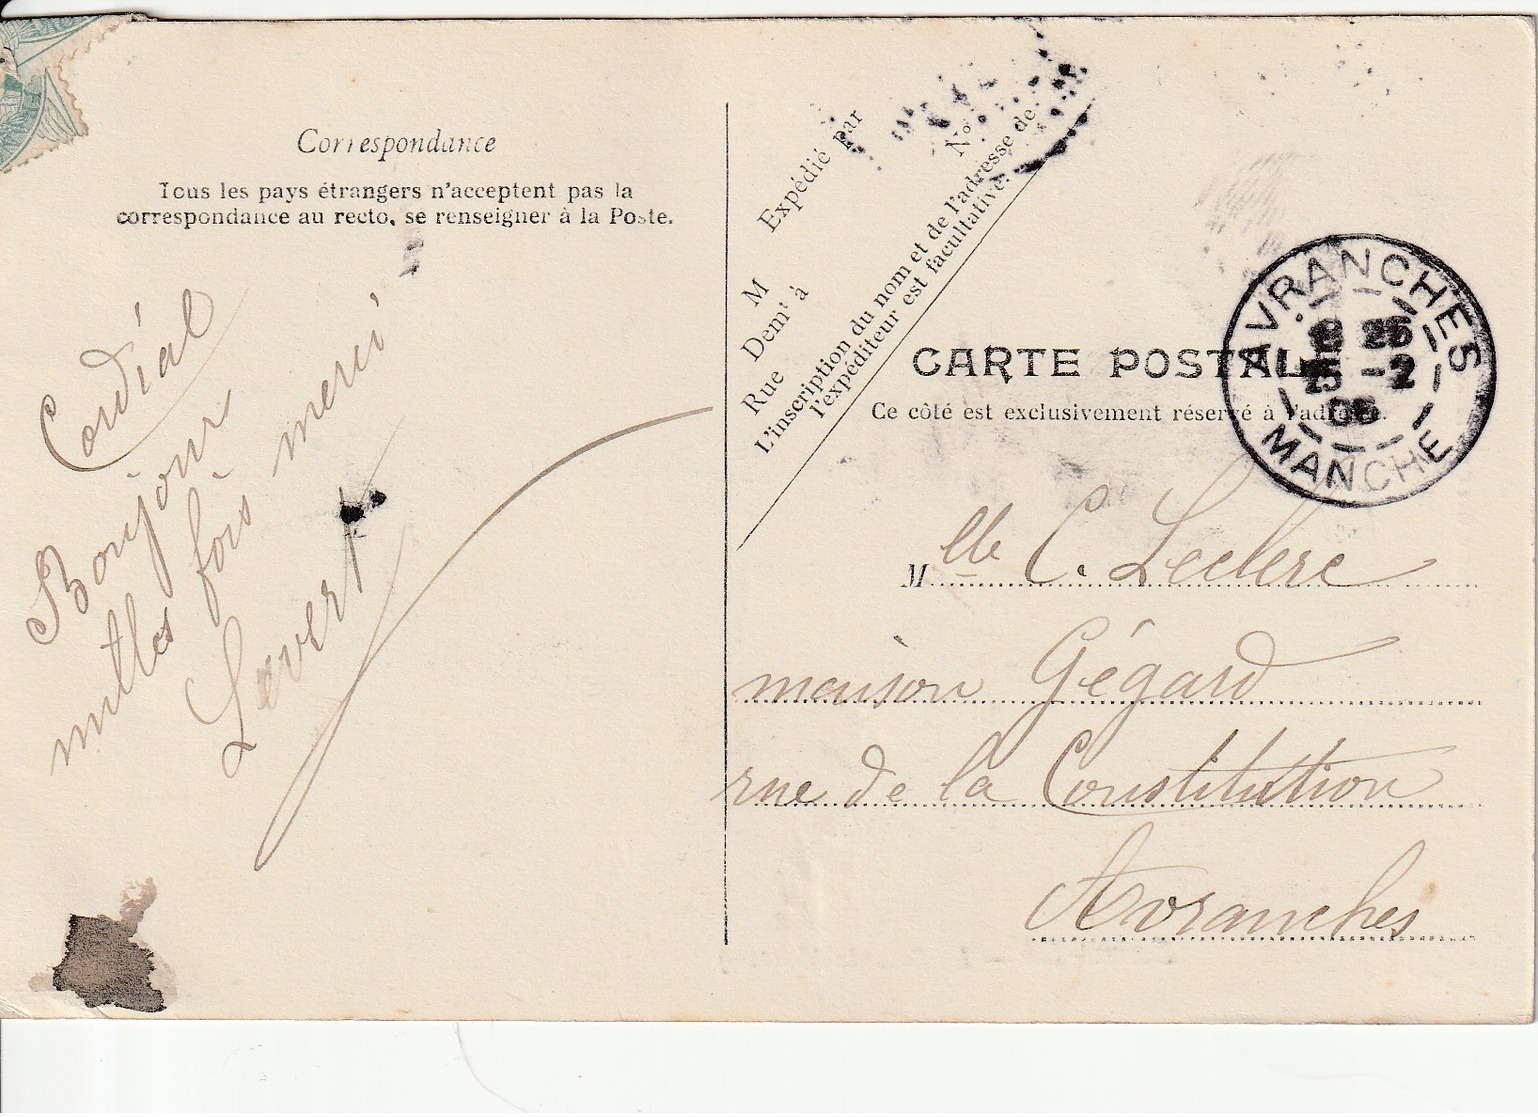 Correspondance
Tous les pays étrangers n'acceptent pas la
correspondance au recto, se renseigner à la Poste.
Cordial
Bonjour
milles fois merci
Levert
Expédié par
M
Demt à
Rue
No
L'inscription du nom et de l'adresse de
l'expéditeur est facultative.
CARTE POSTALE
Ce côté est exclusivement réservé à l'adresse.
AVRANCHES
25
-2
06
MANCHE
Mlle C. Leclerc
maison Gégard
rue de la Constitution
Avranches